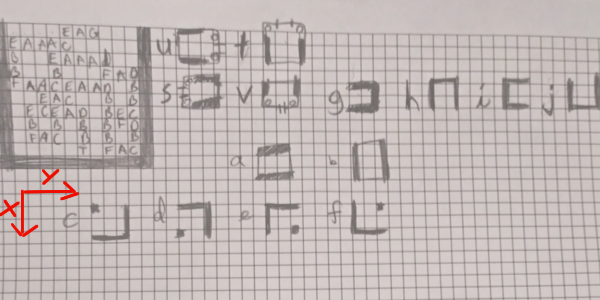 EAG
EAAAC
B EAAAD
B B FAD
FAACEAAD B
EAC B B
ECEAD BEC
B B B BFD
FAC B B B
T FAC
u t
s v g h i j
a b
Y
X
c d e f